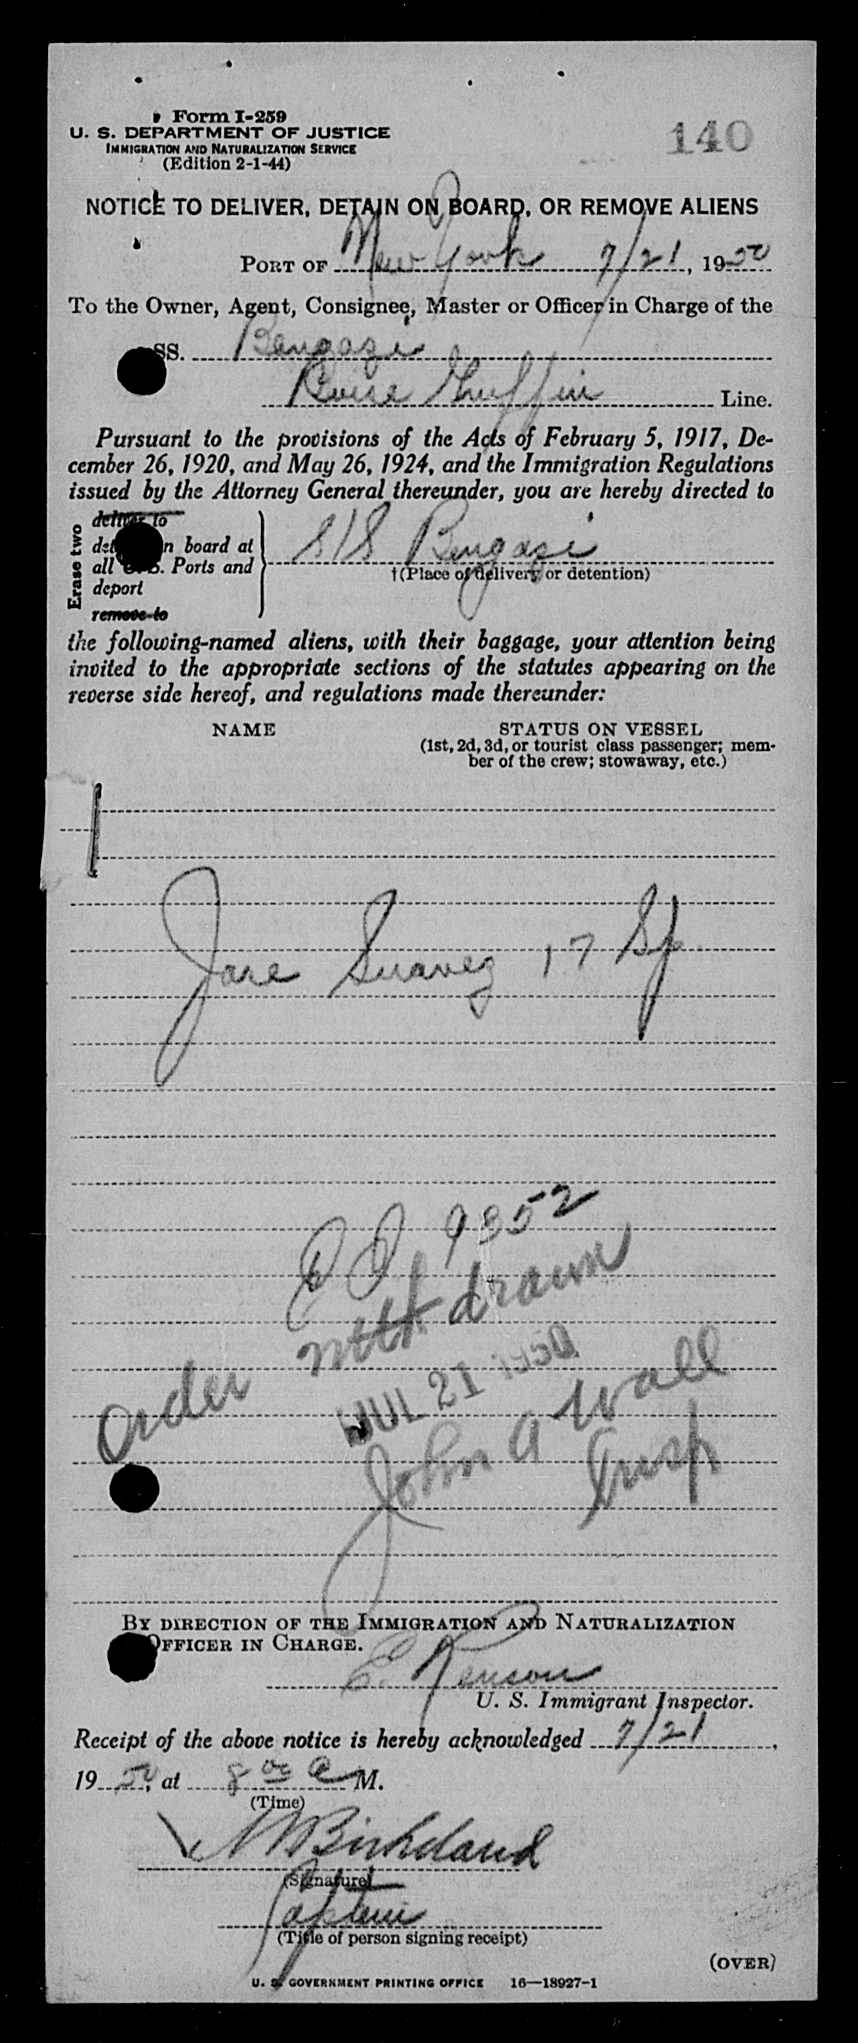 Form I-259
U. S. DEPARTMENT OF JUSTICE
IMMIGRATION AND NATURALIZATION SERVICE
(Edition 2-1-44)
140
NOTICE TO DELIVER, DETAIN ON BOARD, OR REMOVE ALIENS
PORT OF New York 7/21, 1950
To the Owner, Agent, Consignee, Master or Officer in Charge of the
SS. Bengazi
Griffin Line.
Pursuant to the provisions of the Acts of February 5, 1917, De-
cember 26, 1920, and May 26, 1924, and the Immigration Regulations
issued by the Attorney General thereunder, you are hereby directed to
Erase two
deliver to
n board at
all U. S. Ports and
deport
remove to
S/S Bengazi
†(Place of delivery or detention)
the following-named aliens, with their baggage, your attention being
invited to the appropriate sections of the statutes appearing on the
reverse side hereof, and regulations made thereunder:
NAME
STATUS ON VESSEL
(1st, 2d, 3d, or tourist class passenger; mem-
ber of the crew; stowaway, etc.)
Jose Suarez 17 Sp.
9352
order withdrawn
JUL 21 1950
John A Wall
Insp
BY DIRECTION OF THE IMMIGRATION AND NATURALIZATION
OFFICER IN CHARGE.
E. Renson
U. S. Immigrant Inspector.
Receipt of the above notice is hereby acknowledged 7/21,
1950, at 8 00 A M.
(Time)
Birkeland
(Signature)
Captain
(Title of person signing receipt)
(OVER)
U. S. GOVERNMENT PRINTING OFFICE 16—18927-1